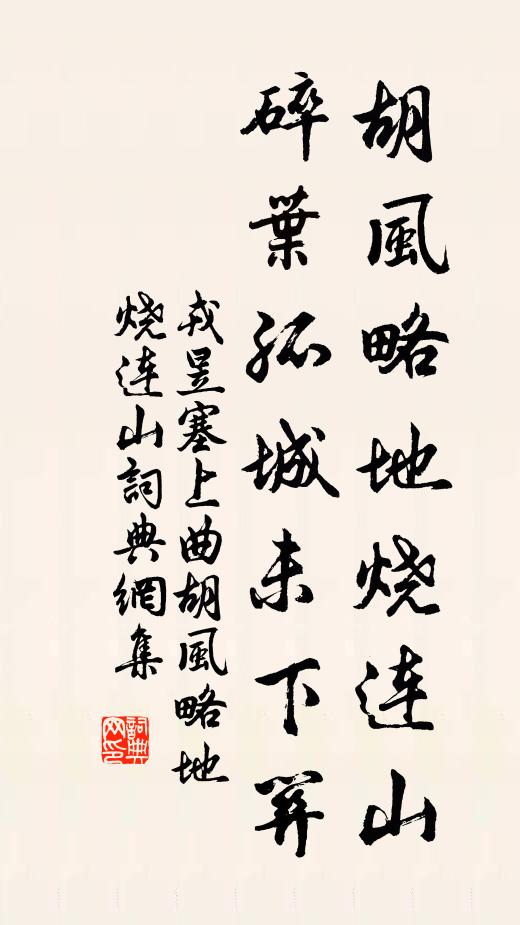 胡風略地烧连山
碎葉孤城未下關
戎昱塞上曲胡風略地
烧连山詞典網集
詞典网印